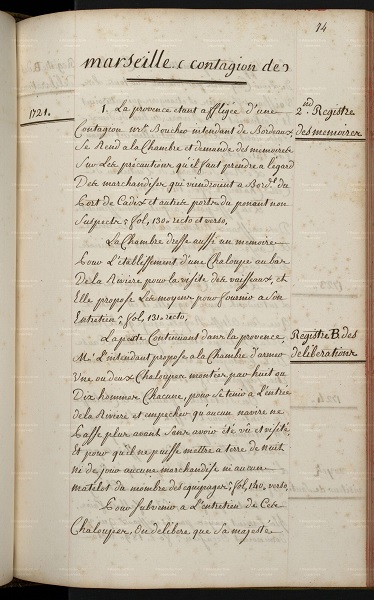 14
marseille (contagion de)
1721.
2nd. Registre
des memoires
1. La provence etant affligée d'une
Contagion mr. Boucher intendant de Bordeaux
Se Rend a la Chambre et demande des memoires
Sur Les précautions qu'il faut prendre a l'égard
Des marchandises qui viendroient a Bord.x du
Port de Cadix et autres ports du ponant non
Suspects; fol, 130. recto et verso,
La Chambre dresse aussi un memoire
Pour L'établissement d'une Chaloupe au bas
De la Riviere pour la visite des vaisseaux, et
Elle propose Les moyens pour fournir a Son
Entretien; fol, 131. recto,
Registre B. des
délibérations
La peste Continuant dans la provence,
Mr. L'intendant propose a la Chambre d'armer
Une ou deux Chaloupes montées par huit ou
Dix hommes Chacune, pour se tenir a L'entrée
de la Riviere et empecher qu'aucun navire ne
Passe plus avant Sans avoir été vû et visité,
Et pour qu'il ne puisse mettre a terre de nuit
ni de jour aucune marchandise ni aucun
matelot du nombre des equipages; fol, 140. verso,
Pour Subvenir a L'entretien de Ces
Chaloupes, On délibere que Sa majesté